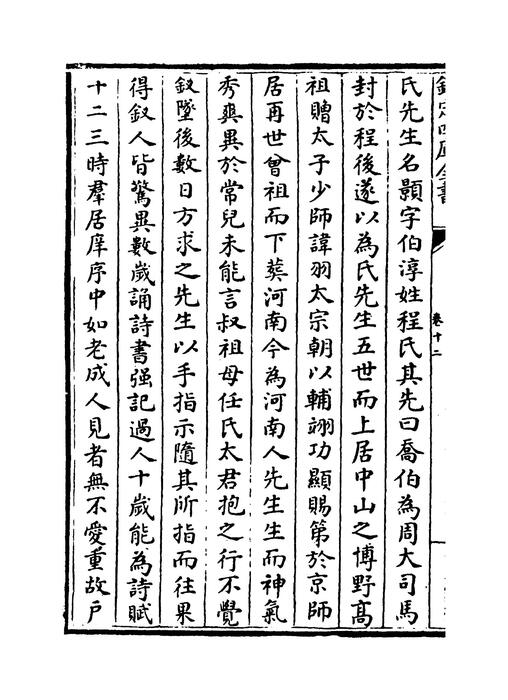 欽定四庫全書
卷十二
氏先生名顥字伯淳姓程氏其先曰喬伯為周大司馬
封於程後遂以為氏先生五世而上居中山之博野高
祖贈太子少師諱羽太宗朝以輔翊功顯賜第於京師
居再世曾祖而下葬河南今為河南人先生生而神氣
秀爽異於常兒未能言叔祖母任氏太君抱之行不覺
釵墜後數日方求之先生以手指示隨其所指而往果
得釵人皆驚異數歲誦詩書强記過人十歲能為詩賦
十二三時羣居庠序中如老成人見者無不愛重故戶